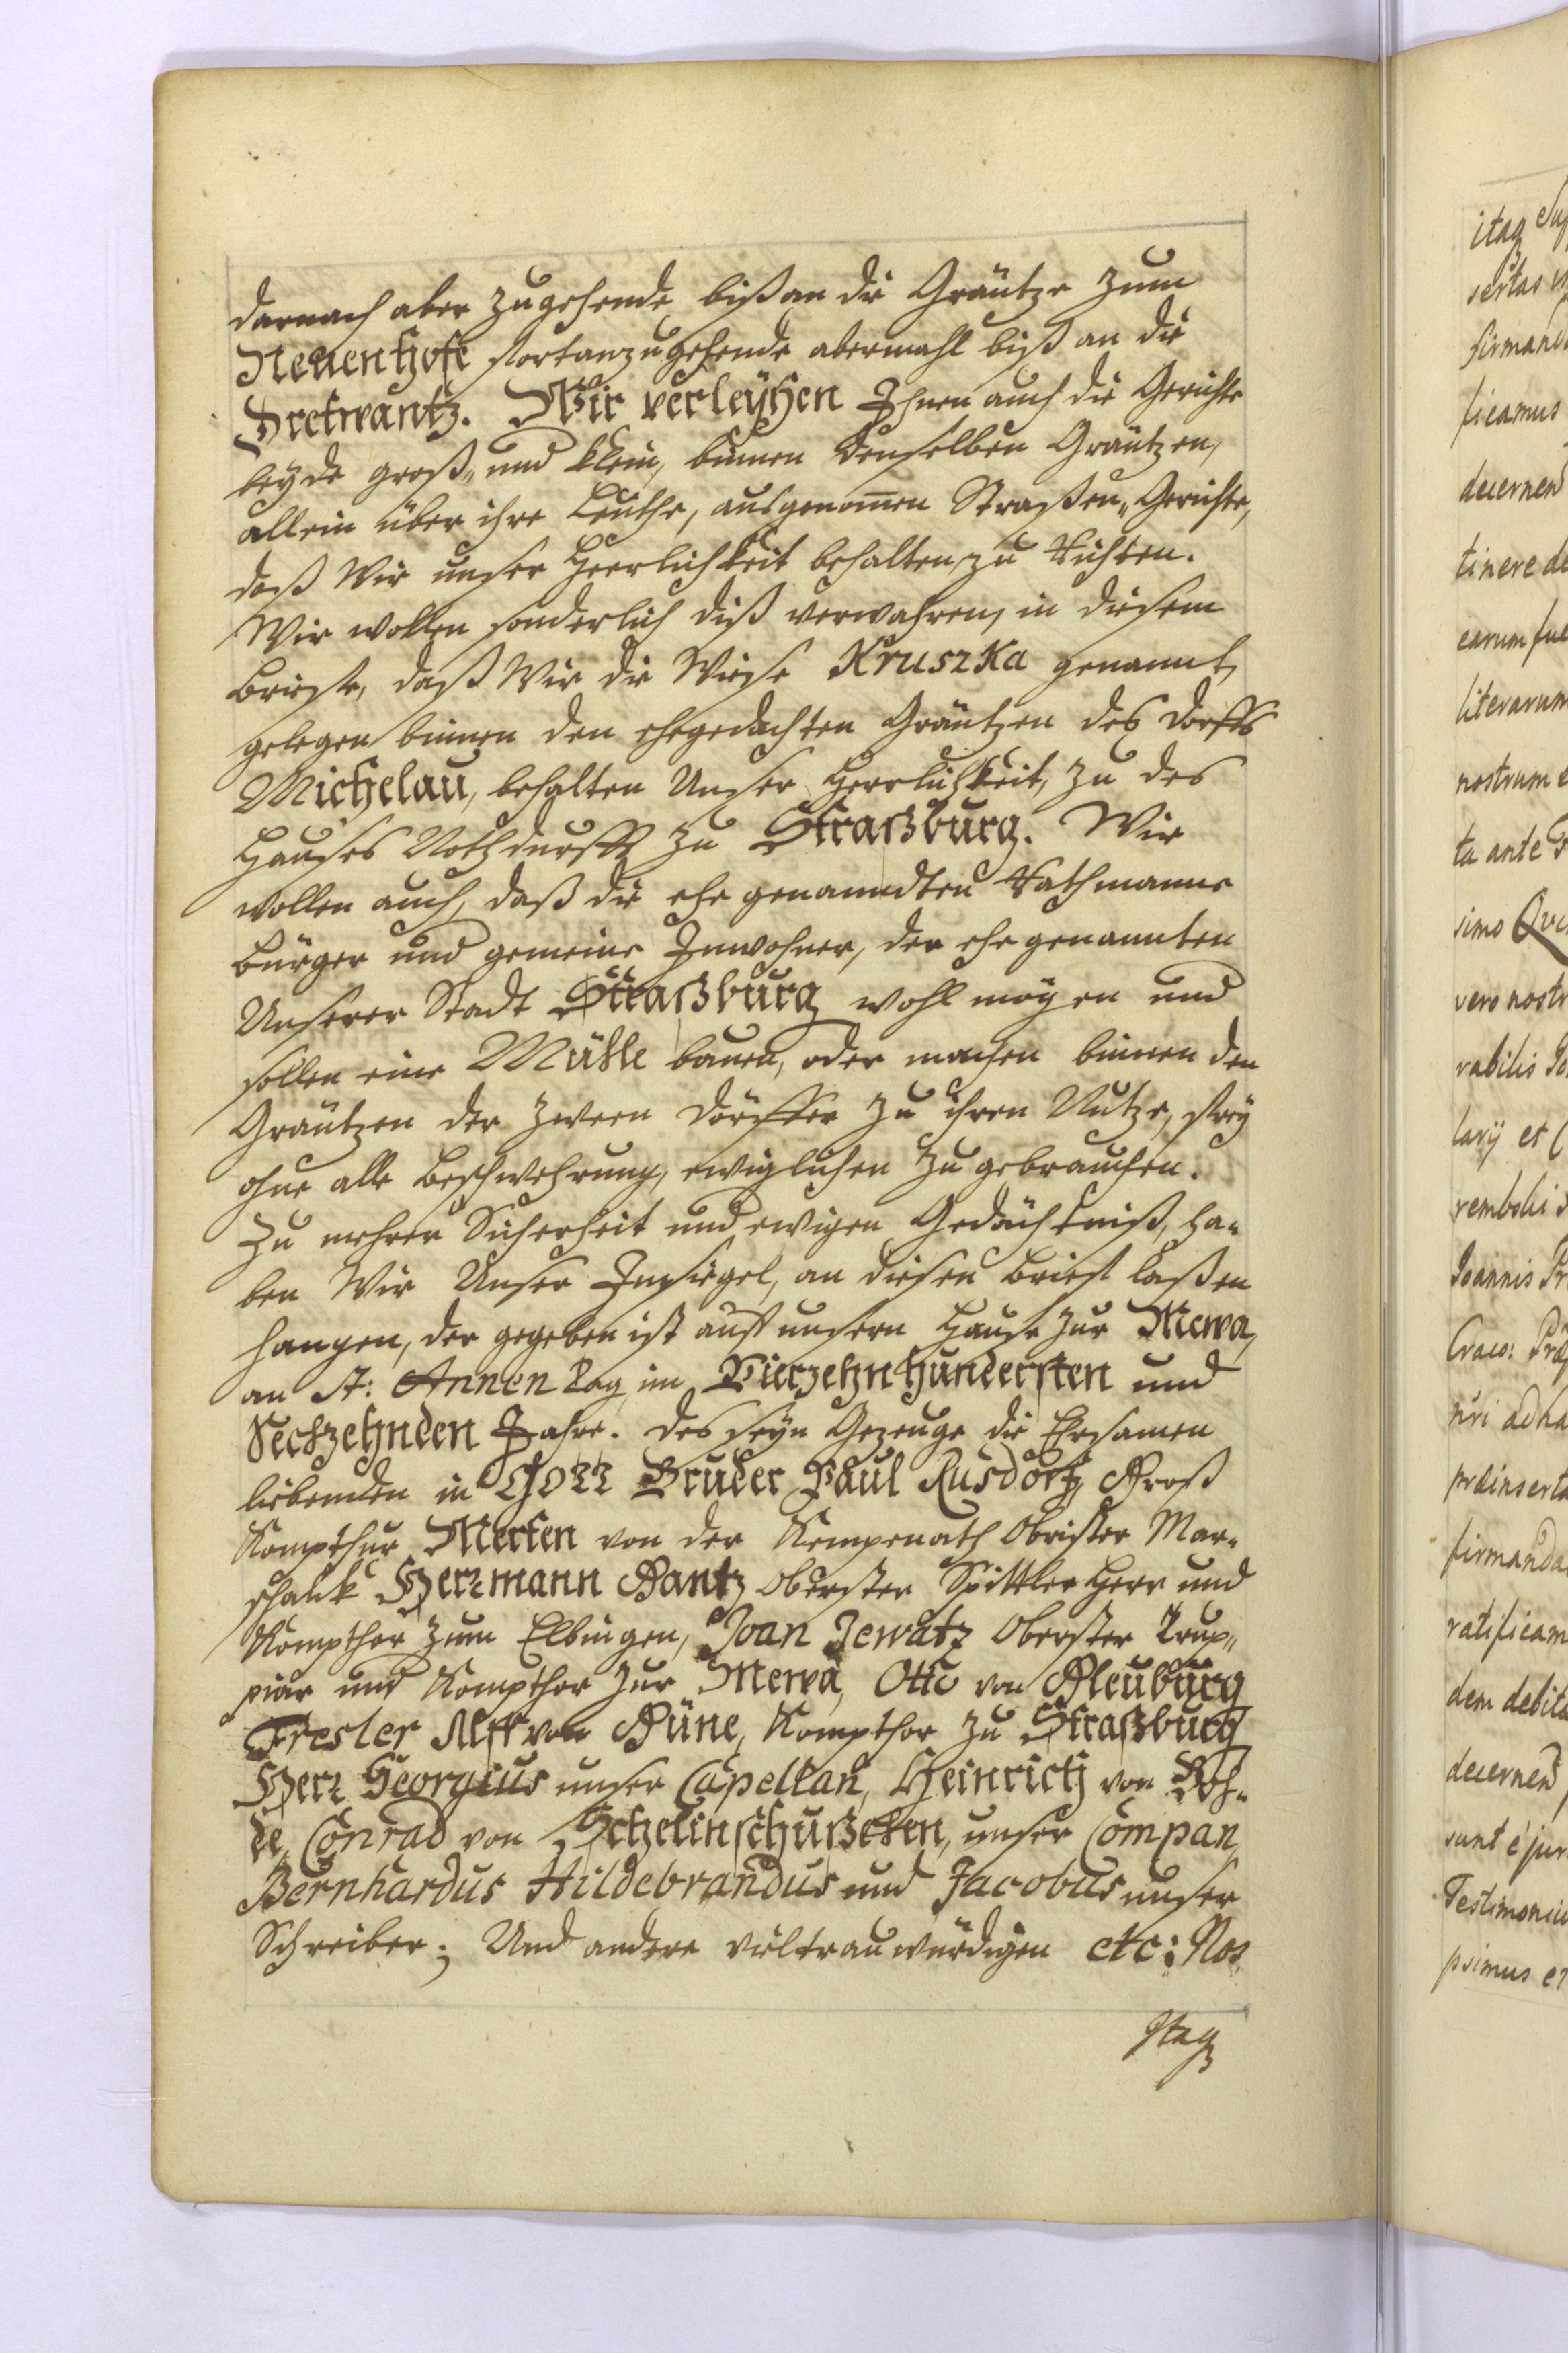 darnach aber zugehende biß an die Gräntze zum
Neuenhofe fortanzugehende abermahl biß an die
Dretwantz. Wir verleyhen Ihnen auch die Gerichte
beyde groß„ und klein, binnen denselben Gräntzen,
allein über ihre Leuthe, ausgenom̄en Straßen„ Gerichte,
daß Wir unser Herrlichkeit behalten zu Richten.
Wir wollen sonderlich diß verwahren, in diesem
Brieffe, daß Wir die Wiese Kruszka genannt,
gelegen binnen den ehegedachten Gräntzen des Dorffs
Michelau, behalten Unser Herrlichkeit, zu des
Hauses Nothdurfft zu Straßburg. Wir
wollen auch, daß die ehe genanndten Rathmanne
Bürger und gemeine Inwohner, der ehe genannten
Unserer Stadt Straßburg wohl mögen und
sollen eine Mühle bauen, oder machen binnen den
Gräntzen der zween Dörffer zu ihren Nutze, frey
ohne alle Beschwehrung, ewiglichen zu gebrauchen.
Zu mehrer Sicherheit und ewigen Gedächtniß, ha„
ben Wir Unser Insiegel, an diesen Brieff laßen
hangen, der gegeben ist auff unsern Hause zur Mewa,
an St: Annen Tag im Vierzehnhundersten und
Sechzehnden Jahre. Des seyn Gezeuge die Ehrsamen
liebenden in GOTT Bruder Paul Rusdorf, Groß
Kompthur Merten von der Kempenath Obrister Mar„
schalck Herrmann Gantz Oberster Spittler Herr und
Kompthor zum Elbingen, Joan Jewatz Oberster Trup„
piar und Kompthor zur Mewa, Otto von
Tresler Alff von Kompthor zu Straßburg
Herr Georgius unser Capellan, Heinrich von Roh„
de, Conrad von unser Compan,
Bernhardus Hildebrandus und Jacobus unser
Schreiber; Und andere vieltrauwürdigen etc: Nos
Itaq
itaq
sertas
firmand
ficamus
decernen
tinere de
earum fue
literarum
nostrum
ta ante
simo
vero nostr
rabilis Jo
larij et
rembski
Joannis
Craco:
nri ad ha
præinserta
firmanda
ratificam
dem debita
decernen
sunt è jur
Testimoniu
psimus et